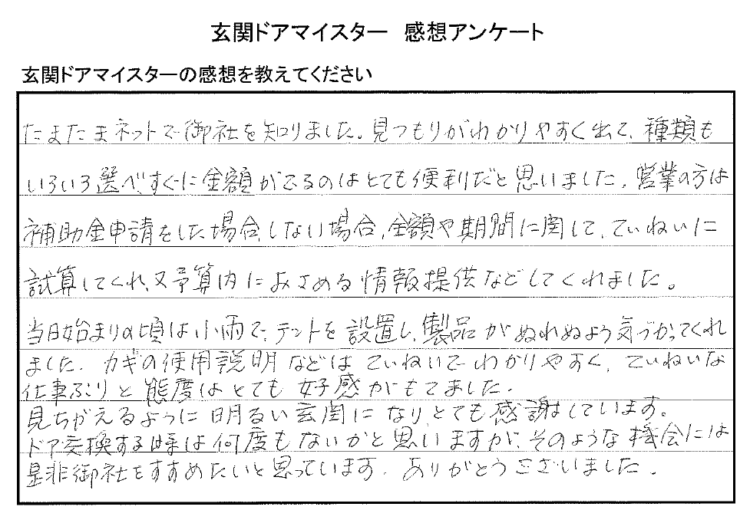 玄関ドアマイスター 感想アンケート
玄関ドアマイスターの感想を教えてください
たまたまネットで御社を知りました。見つもりがわかりやすく出て、種類も
いろいろ選べ、すぐに金額がでるのはとても便利だと思いました。営業の方は
補助金申請をした場合、しない場合、金額や期間に関して、ていねいに
試算してくれ、又予算内におさめる情報提供などしてくれました。
当日始まりの頃は小雨で、テントを設置し、製品がぬれぬよう気づかってくれ
ました。カギの使用説明などはていねいでわかりやすく、ていねいな
仕事ぶりと態度はとても好感がもてました。
見ちがえるように明るい玄関になりとても感謝しています。
ドア交換する時は何度もないかと思いますが、そのような機会には
是非御社をすすめたいと思っています。ありがとうございました。